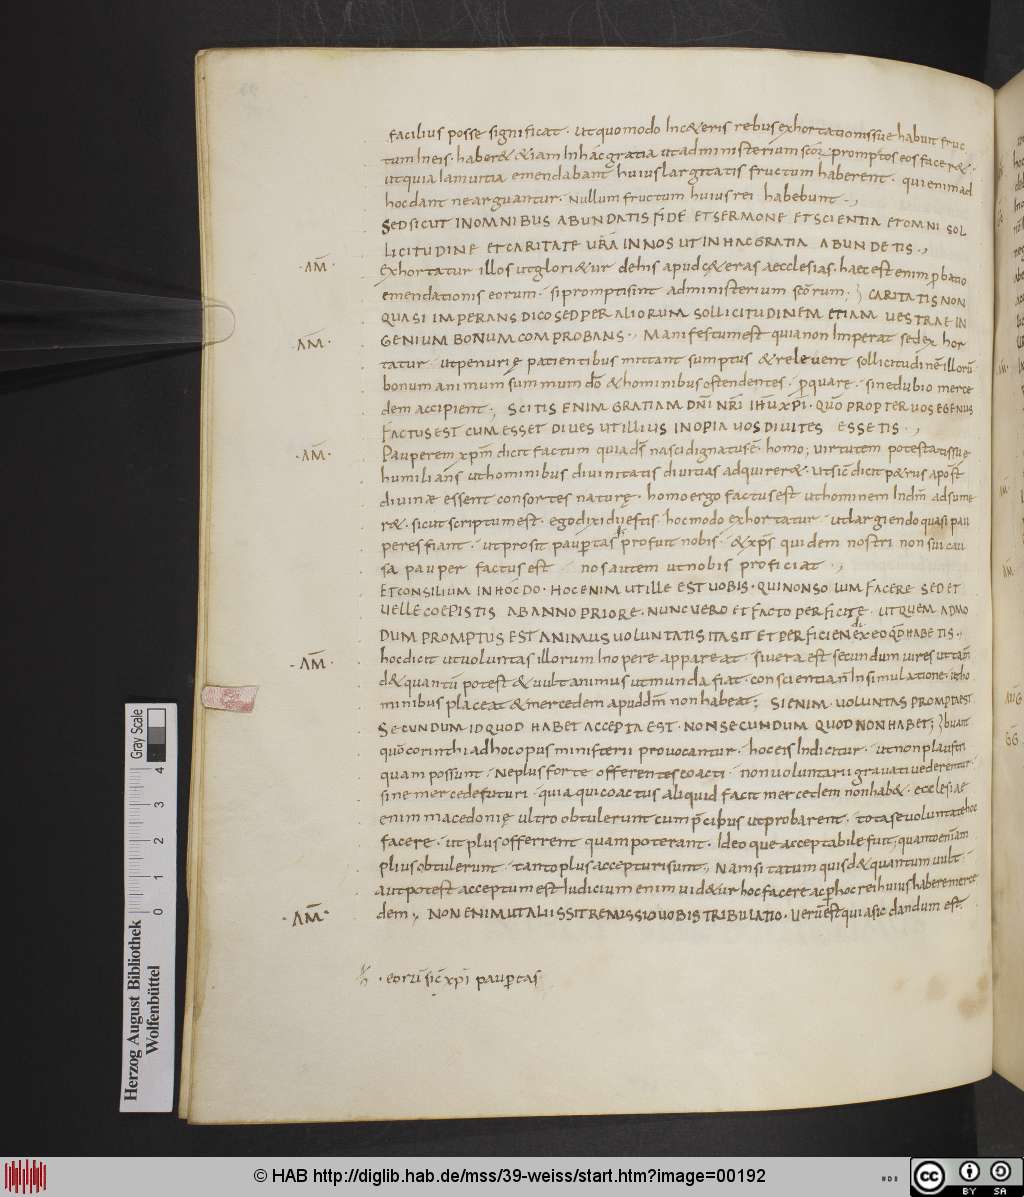 facilius posse significat · ut quomodo In c&eris rebus exhortationis suę habuit fruc
tum In eis · haber& &iam In hac gratia ut ad ministerium scōr promptos eos facer& ·
ut quia Iam uitia emendabant huius largitatis fructum haberent · qui enim ad
hoc dant ne arguantur · Nullum fructum huius rei habebunt ·,
SED SICUT IN OMNIBUS ABUNDATIS FIDE ET SERMONE ET SCIENTIA ET OMNI SOL
LICITUDINE ET CARITATE URĀ IN NOS UT IN HAC GRATIA ABUNDETIS ·,
·AM̄· Exhortatur illos ut glori&ur de his apud c&eras aecclesias · haec est enim ꝓbatio
emendationis eorum · si prompti sint ad ministerium scōrum ; CARITATIS NON
QUASI IMPERANS DICO SED PER ALIORUM SOLLICITUDINEM ETIAM UESTRAE IN
·AM̄· GENIUM BONUM COMPROBANS · Manifestum est quia non Imperat sed ex hor
tatur · ut penurię patientibus mittant sumptus & releuent sollicitudinē illorū
bonum animum summum dō & hominibus ostendentes · ꝑ quarę · sine dubio merce
dem accipient ; SCITIS ENIM GRATIAM DN̄I NR̄I IHŪ XP̄I · QUŌ PROPTER UOS EGENUS
FACTUS EST CUM ESSET DIUES UT ILLIUS INOPIA UOS DIUITES ESSETIS ·,
·AM̄· Pauperem xp̄m dicit factum quia dś nasci dignatus ē · homo ; uirtutem potestatis suę
humilians ut hominibus diuinitatis diuitias adquirer& · ut sic dicit p&rus apost
diuinae essent consortes naturę · homo ergo factus est ut hominem In dm̄ adsume
r& · sicut scriptum est · ego dixi dii estis · hoc modo exhortatur · ut largiendo quasi pau
peres fiant · ut prosit pauꝑtas profuit nobis · & xp̄s quidem nostri non sui cau
sa pauper factus est nos autem ut nobis proficiat ·,
ET CONSILIUM IN HOC DO · HOC ENIM UTILLE EST UOBIS · QUI NON SOLUM FACERE SED ET
UELLE COEPISTIS AB ANNO PRIORE · NUNC UERO ET FACTO PERFICITE · UT QUEM ADMO
DUM PROMPTUS EST ANIMUS UOLUNTATIS ITA SIT ET PERFICIENDI EX EO QD̄ HABETIS ·,
·AM̄· hoc dicit ut uoluntas illorum In opere appareat · si uera est secundum uires ut tam̄
d& quantū potest & uult animus ut munda fiat · conscientia n̄ In simulatione · ut ho
minibus placeat & mercedem apud dm̄ non habeat ; SI ENIM UOLUNTAS PROMPTA EST
SECUNDUM ID QUOD HABET ACCEPTA EST · NON SECUNDUM QUOD NON HABET ; buant
quō corinthi ad hoc opus ministerii prouocantur · hoc eis Indicitur · ut non plus tri
quam possunt · Ne plus forte offerentes coacti · non uoluntarii grauati uederentur ·
sine mercede futuri · quia qui coactus aliquid facit mercedem non hab& · ecclesiae
enim macedonię ultro obtulerunt cum prēcibus ut probarent · tota se uoluntate hoc
facere · ut plus offerrent quam poterant · Ideoque acceptabile fuit ; quanto enim
plus obtulerunt · tanto plus accepturi sunt ·, Nam si tatum quis d& quantum uult ·
aut potest acceptum est Iudicium enim uid&ur hoc facere ac ꝑ hoc rei huius habere merce
·AM̄· dem ; NON ENIM UT ALIIS SIT REMISSIO UOBIS TRIBULATIO · Uerū est quia sic dandum est
h · eorū sic xp̄i pauꝑtas
Herzog August Bibliothek
Wolfenbüttel
Gray Scale
0 1 2 3 4
© HAB http://diglib.hab.de/mss/39-weiss/start.htm?image=00192
HAB
cc BY SA